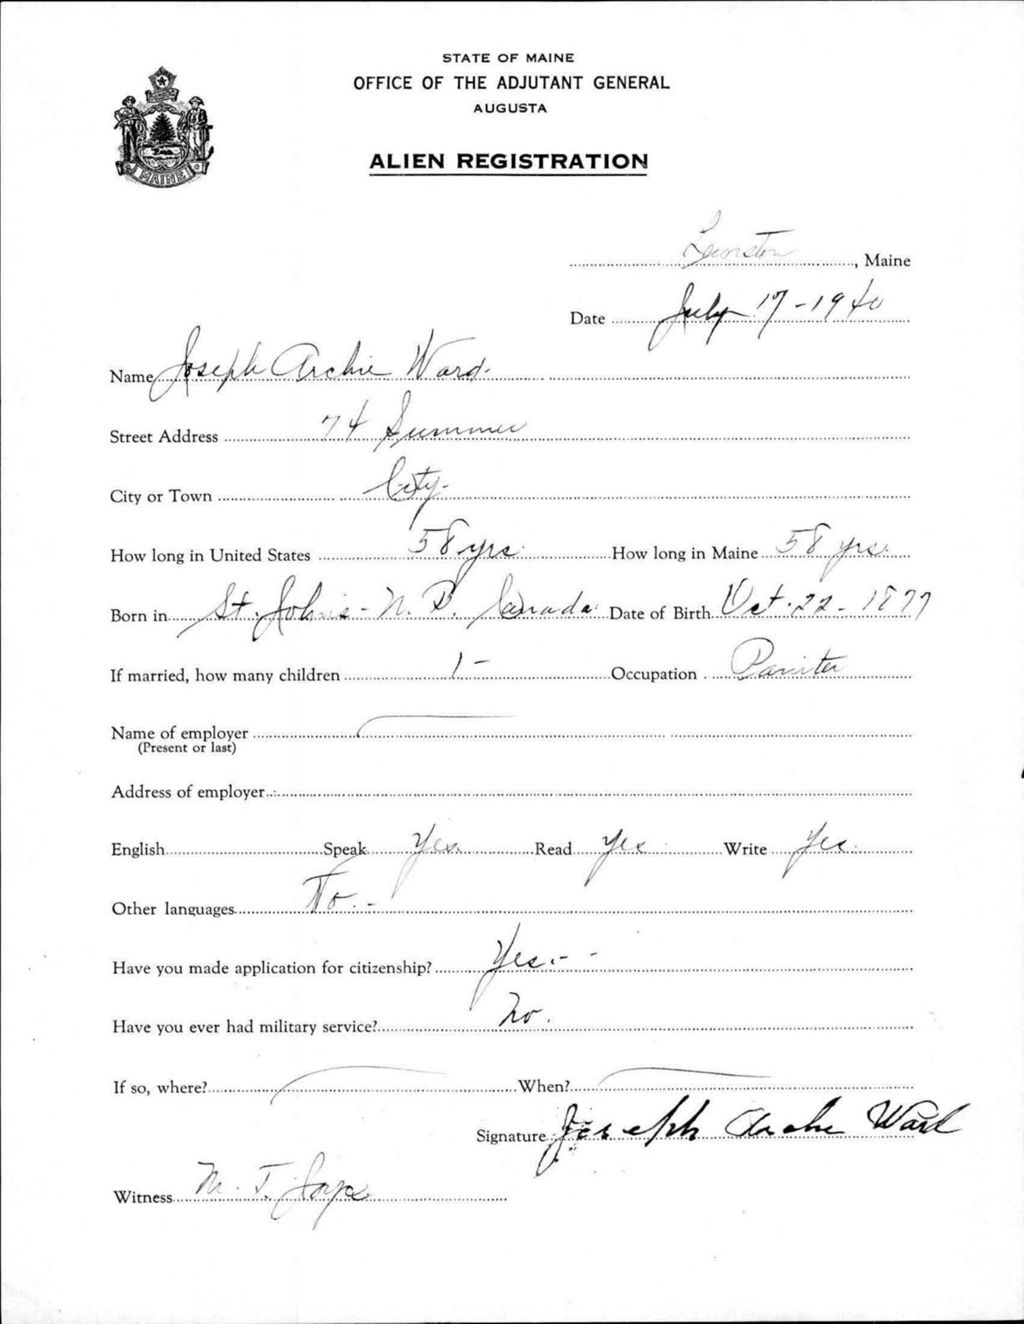 STATE OF MAINE
OFFICE OF THE ADJUTANT GENERAL
AUGUSTA
MAINE
ALIEN REGISTRATION
Lewiston, Maine
Date July 17-1940
Name Joseph Archie Ward.
Street Address 74 Summer
City or Town City.
How long in United States 58 yrs. How long in Maine 58 yrs.
Born in St. Johns - N. B. Canada. Date of Birth Oct. 22 - 1877
If married, how many children 1 - Occupation Painter
Name of employer
(Present or last)
Address of employer
English Speak Yes. Read Yes Write Yes.
Other languages No. -
Have you made application for citizenship? Yes. - -
Have you ever had military service? No.
If so, where? When?
Signature Joseph Archie Ward
Witness M. T. Joyce